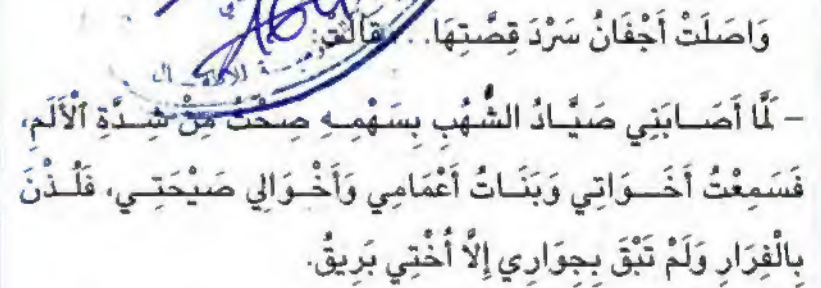 وَاصَلَتْ أَجْفَانُ سَرْدَ قِصَّتِهَا... فَقَالَتْ:
– لَمَّا أَصَابَنِي صَيَّادُ الشُّهُبِ بِسَهْمِهِ صِحْتُ مِنْ شِدَّةِ ٱلْأَلَمِ،
فَسَمِعْتُ أَخَوَاتِي وَبَنَاتُ أَعْمَامِي وَأَخْوَالِي صَيْحَتِي، فَلُذْنَ
بِالْفِرَارِ وَلَمْ تَبْقَ بِجِوَارِي إِلَّا أُخْتِي بَرِيقٌ.